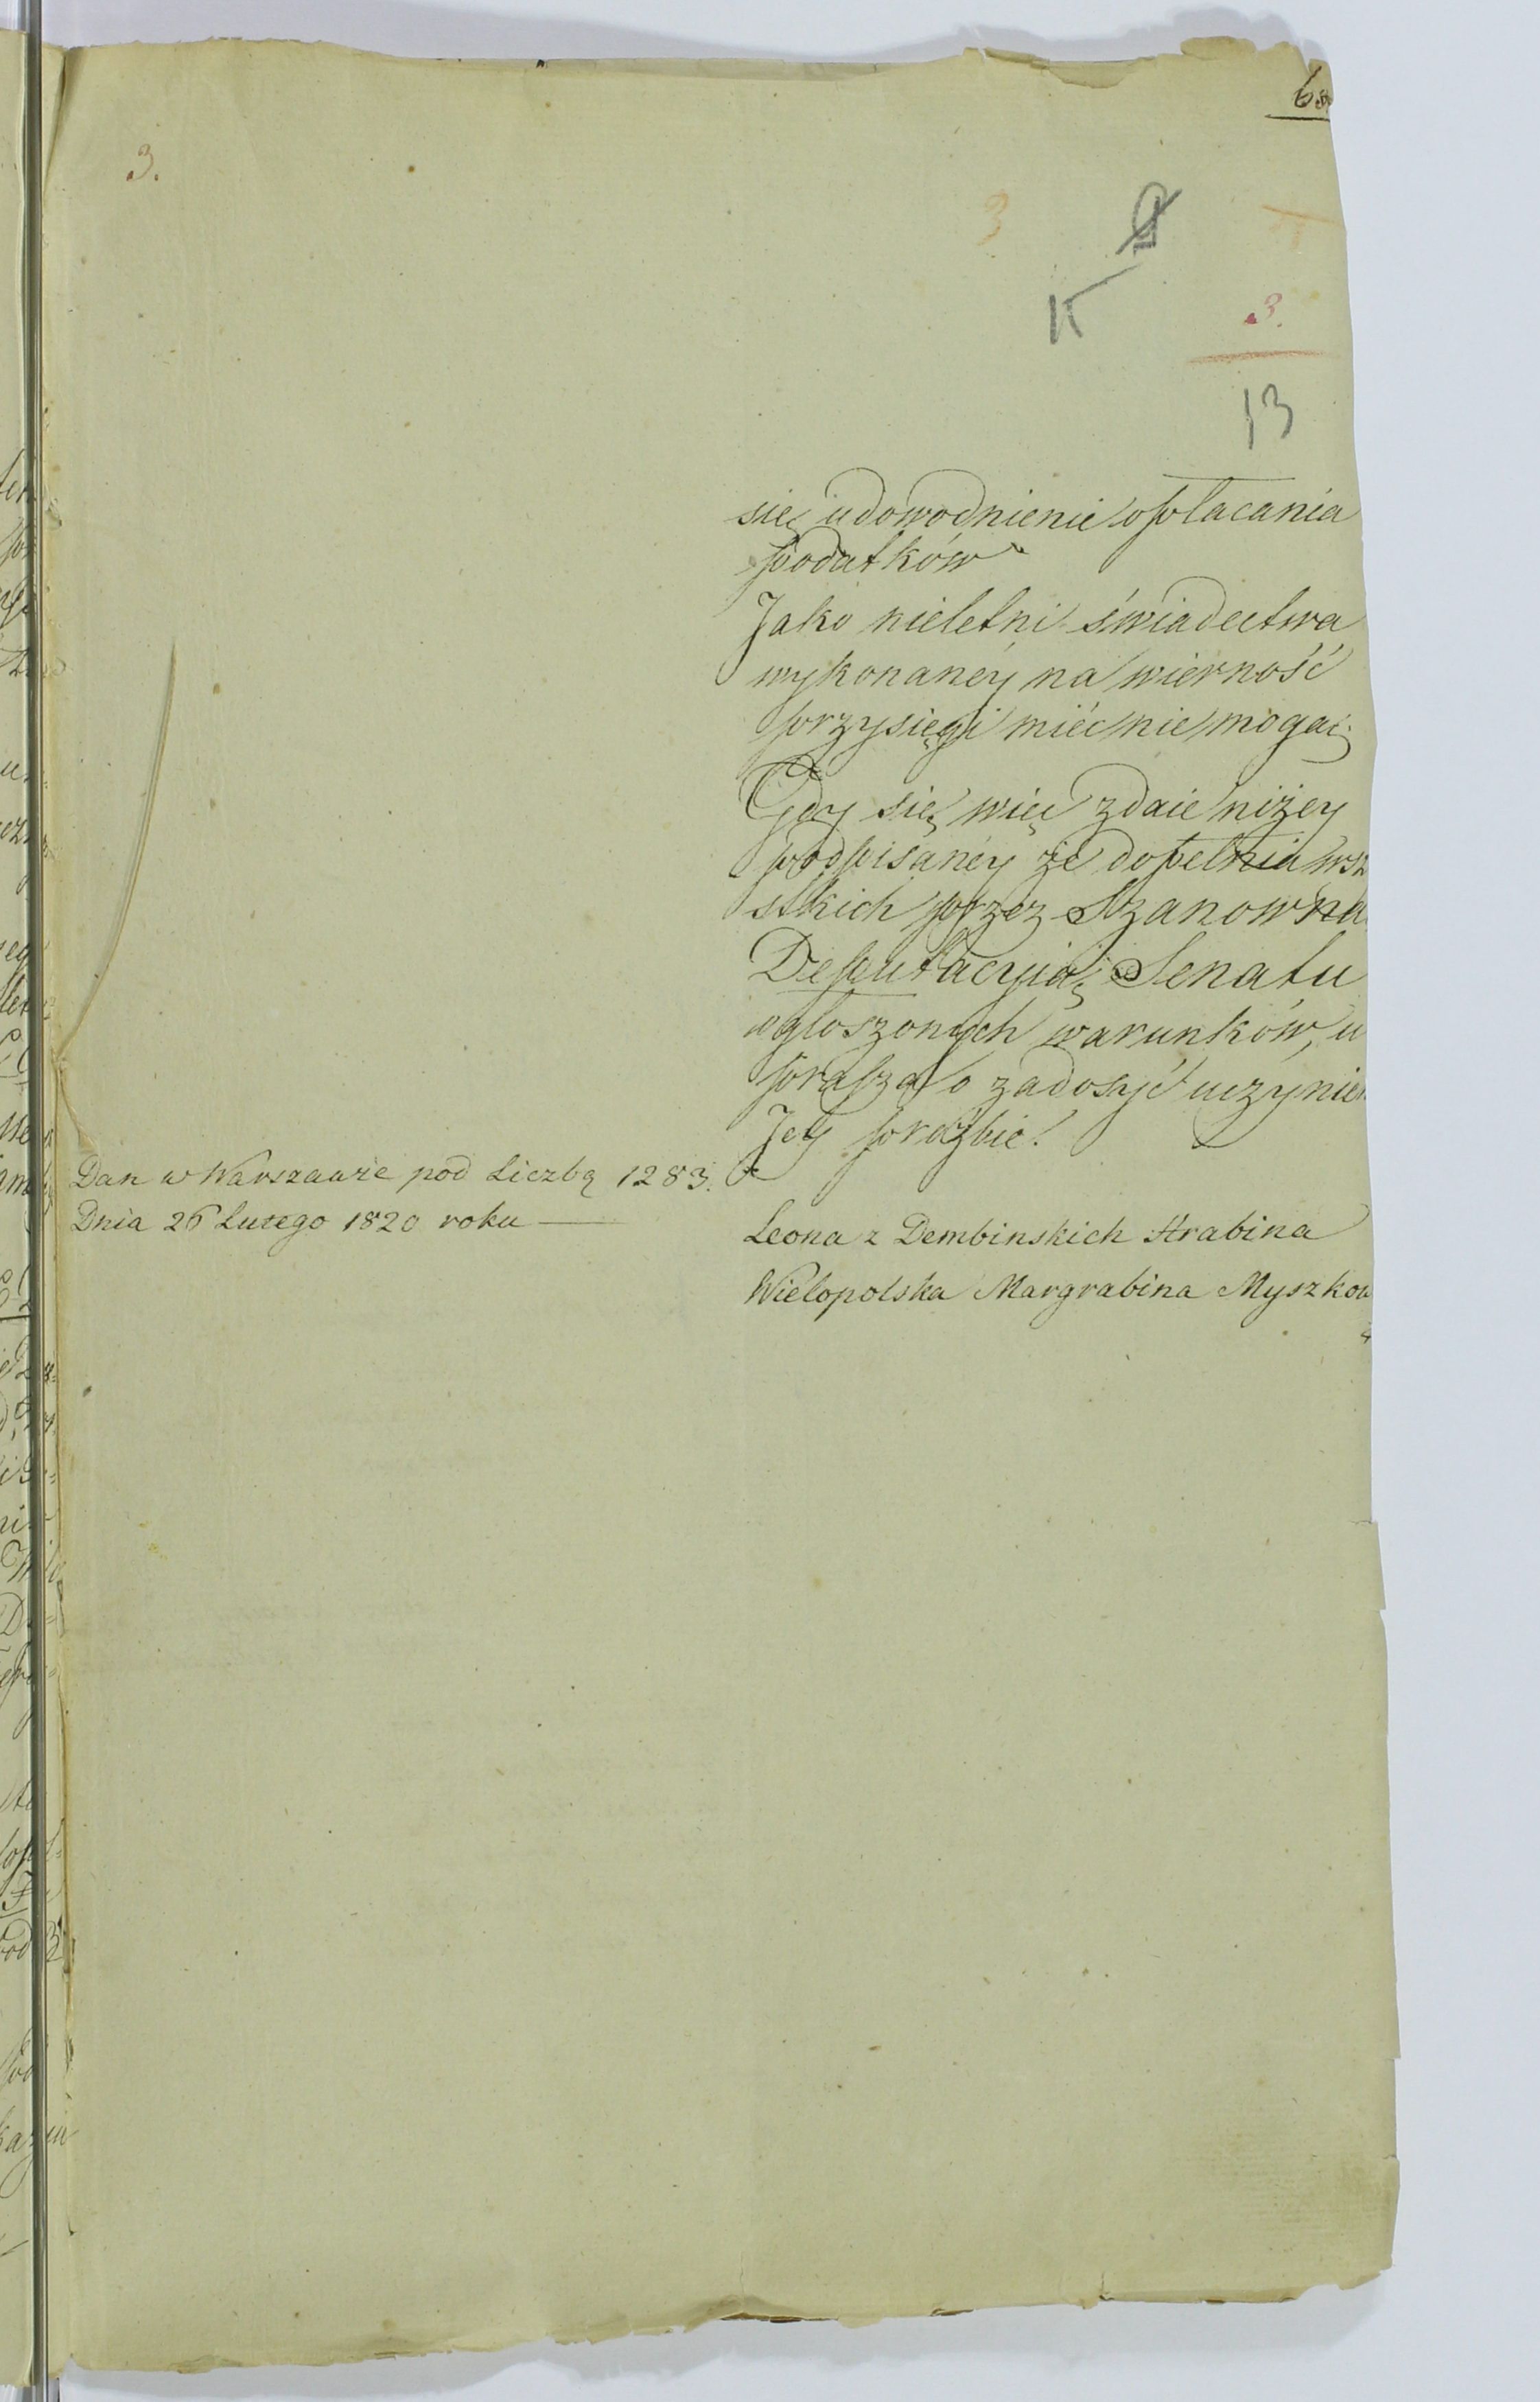 3.
3
3.
13
się udowodnienie opłacania
podatków
Jako nieletni świadectwa
wykonaney na wierność
przysięgi mieć nie mogą;
Gdy się więc zdaie niżey
podpisaney że dopełnia wsz
stkich przez Szanowną
Deputacyią Senatu
ogłoszonych warunków, u
prasza o zadosyć uczynien
Jey prożbie!
Dan w Warszawie pod Liczbą 1283.
Dnia 26 Lutego 1820 roku
Leona z Dembinskich Hrabina
Wielopolska Margrabina Myszkow